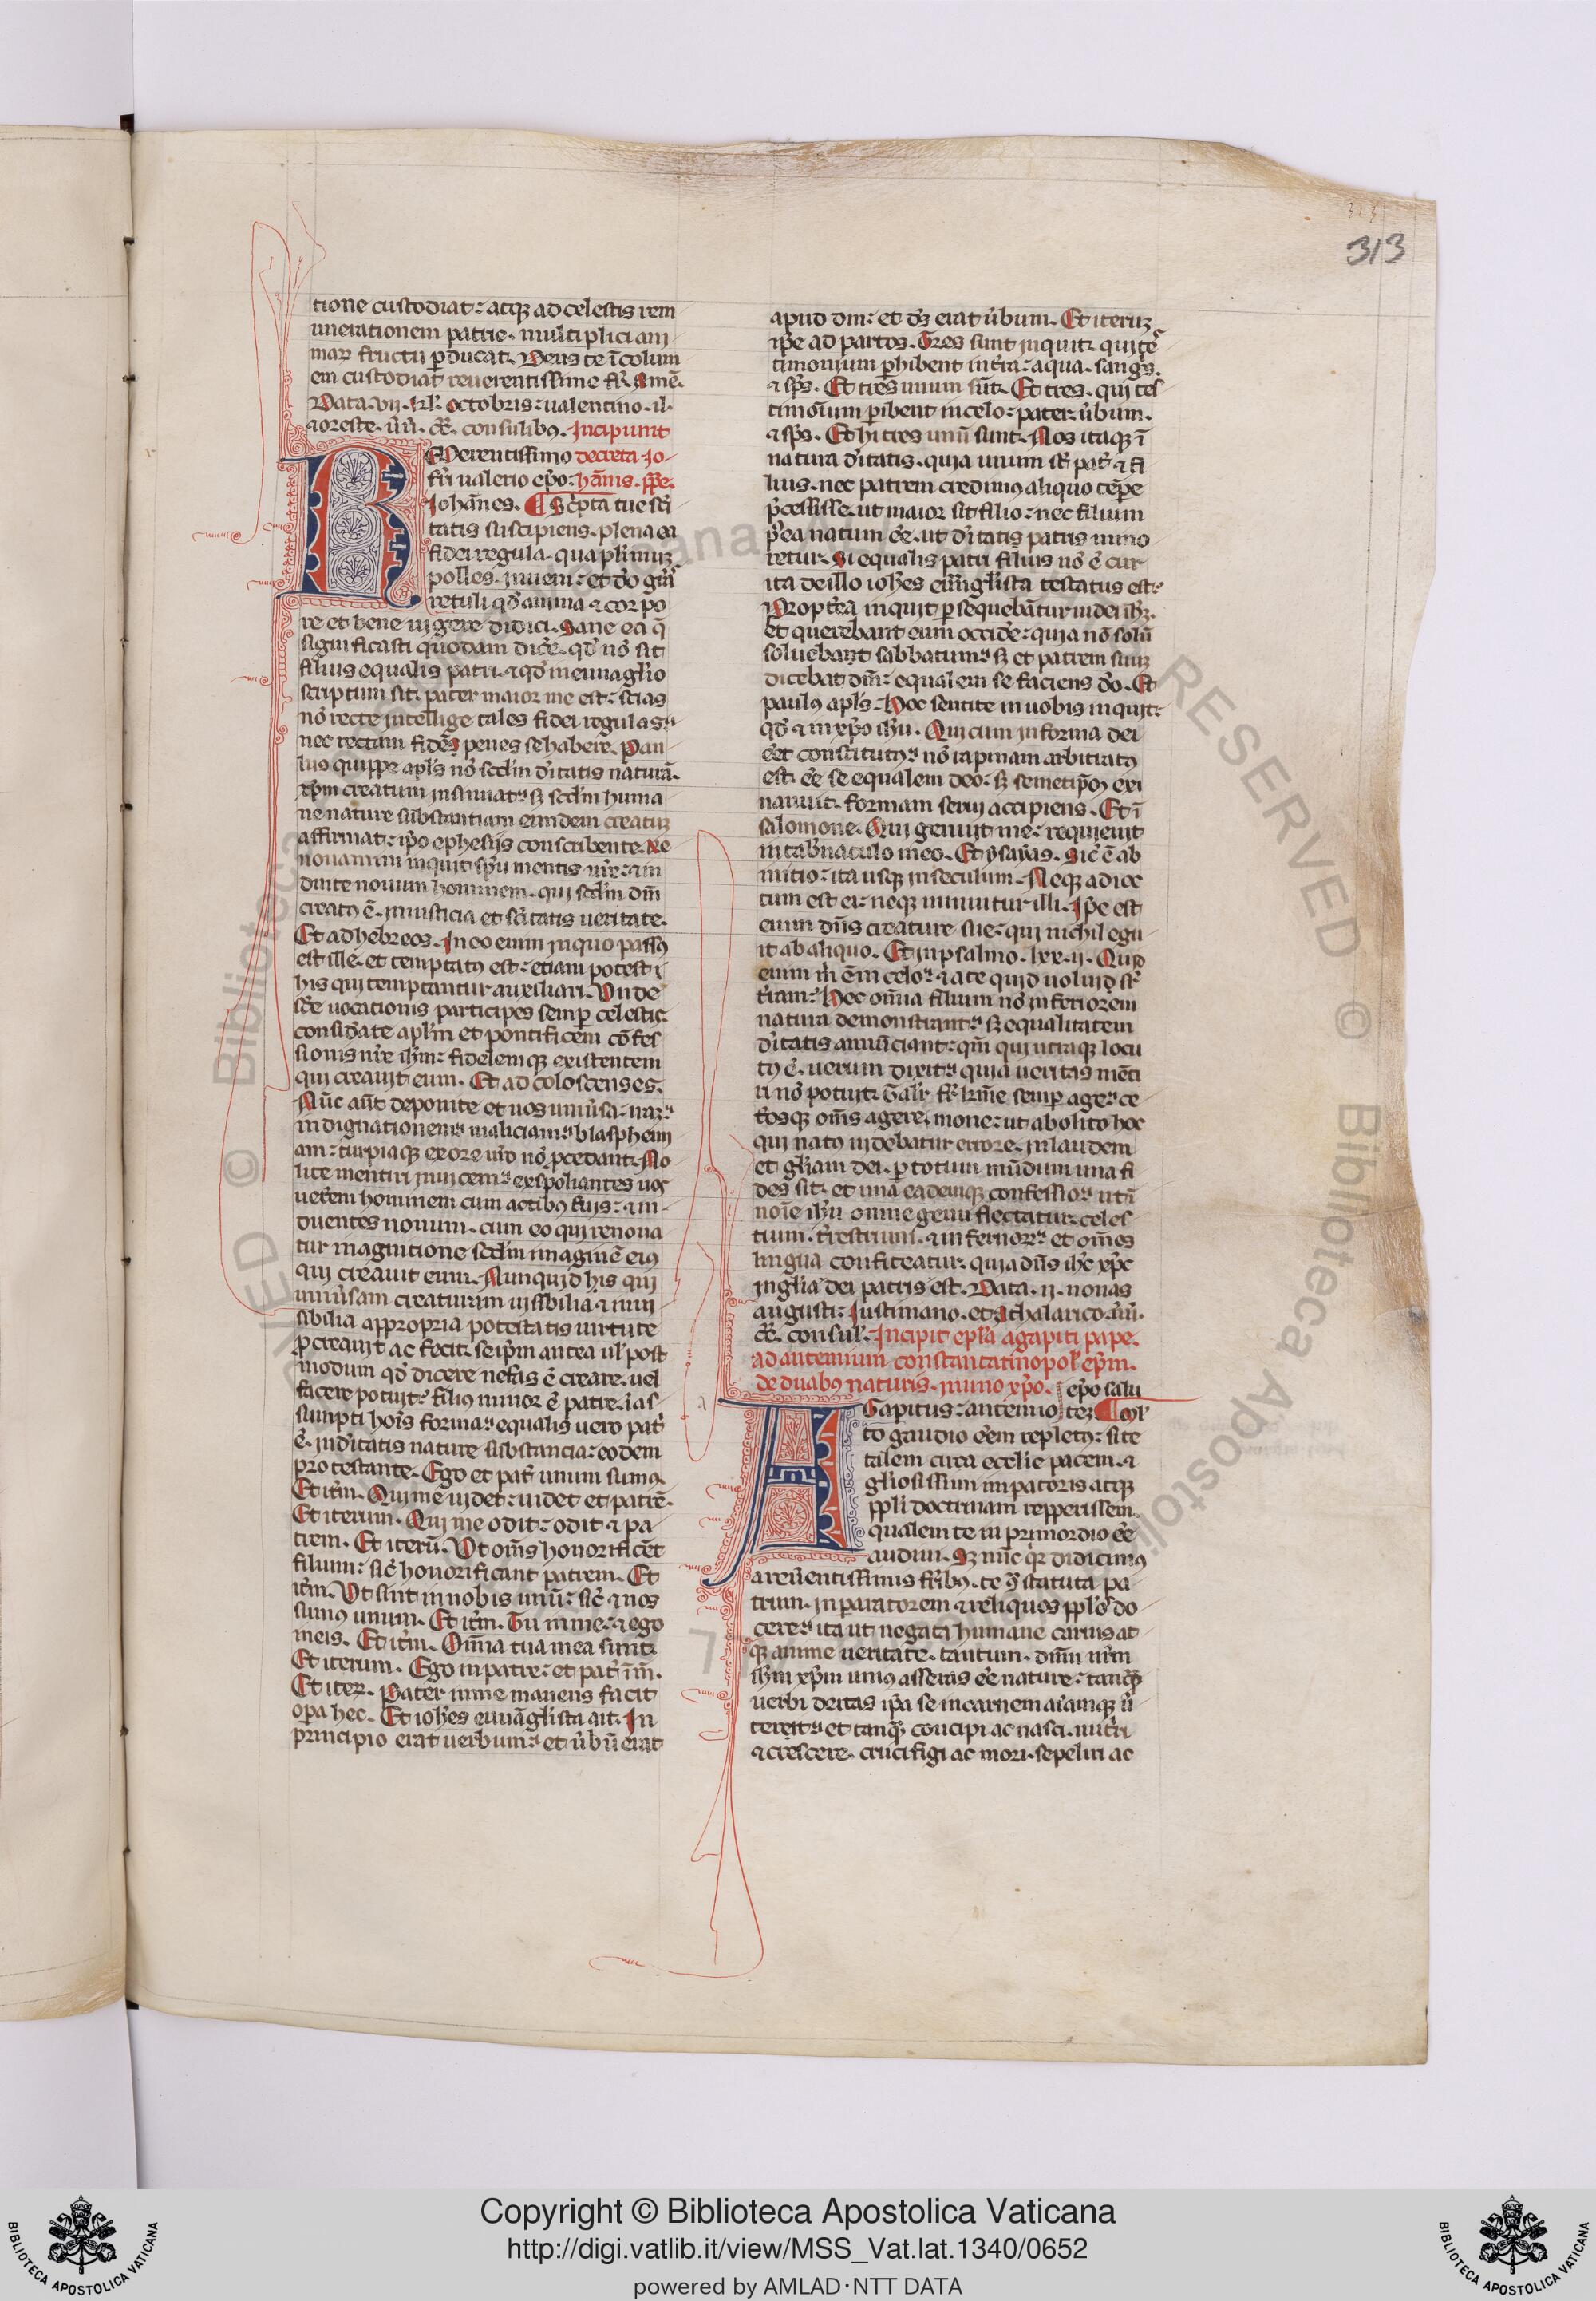 313
313
tione custodiat: atq; ad celestis rem
unerationem patrie. multiplici ani
marꝝ fructu ꝑducat. Deus te īcolum
em custodiat reuerentissime fr̄. Amē.
Data. vij. kl̄. octobris: ualentino. il.
⁊ oreste. ūū. cc̄. consulibꝰ. Incipiunt
REuerentissimo decreta Jo-
fr̄i ualerio ep̄o: hānis. pp̄e.
Johānes. ¶ Sc̄pta tue sc̄i
tatis suscipiens. plena ea
fidei regula. qua plimuꝫ
polles. inueni: et dō gr̄as
retuli qd̄ anima ⁊ corpo
re et bene uigere didici. Sane ea q̄
significasti quosdam dic̄e. qd̄ nō sit
filius equalis patri. ⁊ qd̄ in euuāglio
scriptum sit. pater maior me est: scias
nō recte intellige tales fidei regulas.
nec rectam fidēs penes se habere. Pau
lus quippe apl̄s nō scd̄m d̄itatis naturā.
xp̄m creatum insinuat: sꝫ scd̄m huma
ne nature substantiam eundem creatuꝫ
affirmat: ip̄o ephesijs conscribente. Re
nouamini inquit sp̄u mentis nr̄e: ⁊ in
duite nouum hominem. qui scd̄m dm̄
creatꝰ ē. in iusticia et sc̄itatis ueritate.
Et ad hebreos. In eo enim in quo passꝰ
est ille. et temptatꝰ est: etiam potest ī
his qui temptantur auxiliari. Unde
sc̄e uocationis participes semꝑ celestis:
consid̄ate apl̄m et pontificem cōfes
sionis nr̄e ih̄m: fidelemq; existentem
qui creauit eum. Et ad colossenses.
Nūc aūt deponite et uos uniūsa: iraꝫ.
indignationem. maliciam. blasphem
iam: turpiaq; ex ore ur̄o nō ꝓcedant. No
lite mentiri inuicem. exspoliantes uos
ueterem hominem cum actibꝰ suis: ⁊ in-
duentes nouum. cum eo qui renoua
tur in agnitione scd̄m imaginē eiꝰ
qui creauit eum. Nunquid his qui
uniūsam creaturam uisibilia ⁊ inui
sibilia a ppropria potestatis uirtute
ꝓcreauit ac fecit. seip̄m antea ul̄ post
modum qd̄ dicere nefas ē creare. uel
facere potuit. filius minor ē patre. ī as
sumpti hoīs forma: equalis uero pat̄
ē. in d̄itatis nature substancia: eodem
protestante. Ego et pat̄ unum sumꝰ.
Et itm̄. Qui me uidet: uidet et patrē.
Et iterum. Qui me odit: odit ⁊ pa
trem. Et iterū. Ut om̄s honorificēt
filium: sic̄ honorificant patrem. Et
itm̄. Ut sint in nobis unū: sic̄ ⁊ nos
sumꝰ unum. Et itm̄. Tu in me: ⁊ ego
in eis. Et itm̄. Om̄ia tua mea sunt.
Et iterum. Ego in patre: et pat̄ ī m̄.
Et iteꝝ. Pater in me manens facit
oꝑa hec. Et ioh̄es euuāglista ait. In
principio erat uerbum: et ūbū erat
apud dm̄: et ds̄ erat ūbum. Et iteruꝫ
ip̄e ad partos. Tres sunt inquit. qui tes
timonium ꝑhibent in tr̄a: aqua. sangīs.
⁊ sp̄s. Et tres unum sūt. Et tres. qui tes
timoīum ꝑibent in celo: pater. ūbum.
⁊ sp̄s. Et hi tres unū sunt. Nos itaq; ī
natura d̄itatis. quia unum st̄ pat̄ ⁊ fi
lius. nec patrem credimꝰ aliquo tēꝑe
p̄cessisse. ut maior sit filio: nec filium
p̄ea natum ēe. ut d̄itatis patris mino
retur. Si equalis patri filius nō ē cur
ita de illo ioh̄es euuāglista testatus est.
Propt̄ea inquit ꝑsequebātur iudei ih̄ꝫ.
Et querebant eum occid̄e: quia nō solū
soluebant sabbatum: sꝫ et patrem suuꝫ
dicebat dm̄: equalem se faciens dō. Et
paulꝰ apl̄s. Hoc sentite in uobis inquit
qd̄ ⁊ in xp̄o ih̄u. Qui cum in forma dei
ēet constitutꝰ. nō rapinam arbitratꝰ
est. ēe se equalem deo: sꝫ semetip̄m exi
naniuit. formam serui accipiens. Et ī
salomone. Qui genuit me: requieuit
in tab̄naculo meo. Et ysayas. Sic̄ ē ab
initio: ita usq; in seculum. Neq; adiec
tum est ei: neq; minuitur illi. Ip̄e est
enim dn̄s creature sue: qui nichil egu
it ab aliquo. Et in psalmo. lxx. ij. Quid
enim m̄ ē in celo: ⁊ a te quid uolui sr̄
t̄ram. Hec om̄ia filium nō inferiorem
natura demonstrant: sꝫ equalitatem
d̄itatis annūciant: qm̄ qui utraq; locu
tꝰ ē. uerum dixit: quia ueritas mēti
ri nō potuit. Talit̄ fr̄ kr̄me semꝑ age: ce
t̄osq; om̄s agere. mone: ut abolito hoc
qui natꝰ uidebatur errore. in laudem
et gl̄iam dei. ꝑ totum mūdum una fi
des sit. et una eademq; confessio: ut ī
noīe ih̄u omne genu flectatur. celes
tium. t̄restrium. ⁊ infernorꝝ. et om̄es
lingua confiteatur. quia dn̄s ih̄c xp̄c
in gl̄ia dei patris est. Data. ij. nonas
augusti: Justiniano. et Athalarico. ūū.
cc̄. consul̄. Incipit ep̄la agapiti pape.
ad antemium constantatinopol̄ ep̄m.
de duabꝰ naturis. in uno xp̄o. ep̄o salu
AGapitus: antemio teꝫ ¶ Mul
to gaudio ēem repletꝰ: si te
talem circa eccl̄ie pacem. ⁊
gl̄iosissimi imꝑatoris atq;
pp̄li doctrinam repperissem.
qualem te in primordio ēe
audiui. Sꝫ nūc q̄r didicimꝰ
a reūentissimis fr̄ibꝰ. te ɔ̄ statuta pa
trum. inꝑatorem ⁊ reliquos pp̄lōs do
cere: ita ut negata humane carnis at
q; anime ueritate. tantum. dm̄ nr̄m
ih̄m xp̄m unius asseras ēe nature: tanq̄
uerbi deitas ip̄a se in carnem aīamq; ū
terit. et tanq̄ concipi ac nasci. nutr̄i
⁊ crescere. crucifigi ac mori. sepeliri ac
Copyright © Biblioteca Apostolica Vaticana
http://digi.vatlib.it/view/MSS_Vat.lat.1340/0652
powered by AMLAD·NTT DATA
BIBLIOTECA APOSTOLICA VATICANA
BIBLIOTECA APOSTOLICA VATICANA